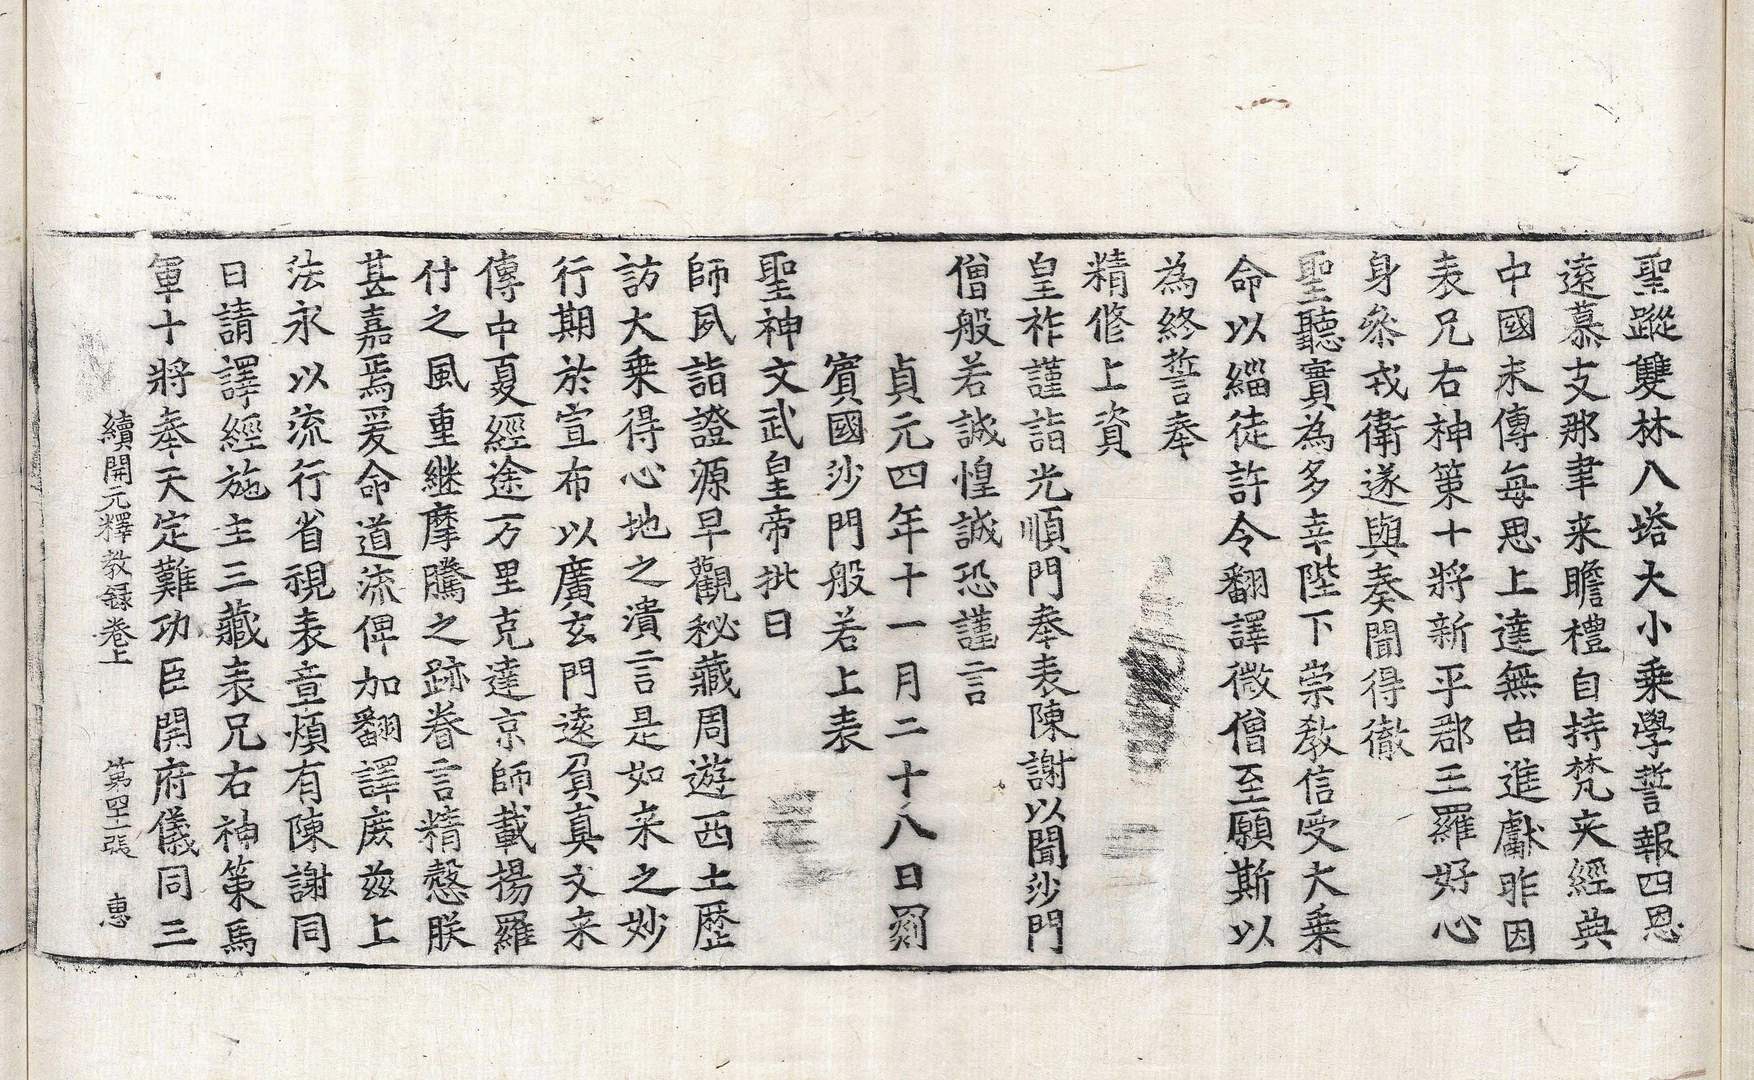 聖蹤雙林八塔大小乗學誓報四恩
遠慕支那聿来瞻禮自持梵夾經典
中國未傳每思上達無由進獻昨因
表兄右神策十將新平郡王羅好心
身叅戎衛遂與奏聞得徹
聖聽實為多幸陛下崇敎信受大乗
命以緇徒許令翻譯微僧至願斯以
為終誓奉
精修上資
皇祚謹詣光順門奉表陳謝以聞沙門
僧般若誠惶誠恐謹言
貞元四年十一月二十八日罽
賓國沙門般若上表
聖神文武皇帝批曰
師夙詣證源早觀秘藏周遊西土歷
訪大乗得心地之瀆言是如来之妙
行期於宣布以廣玄門遠負真文来
傳中夏經途万里克達京師載揚羅
什之風重継摩騰之跡眷言精慤朕
甚嘉焉爰命道流俾加翻譯庻茲上
法永以流行省視表章煩有陳謝同
日請譯經施主三藏表兄右神策馬
軍十將奉天定難功臣開府儀同三
續開元釋教録卷上　第四張　惠